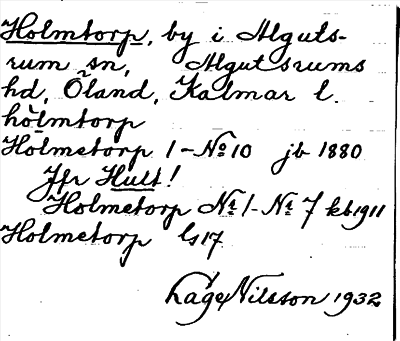 Holmtorp, by i Alguts-
rum sn, Algutsrums
hd, Öland, Kalmar l.
hòlmtorp
Holmetorp 1-No 10 jb 1880
Jfr Hult!
Holmetorp No 1-No 7 kb 1911
Holmetorp ls 17
Lage Nilsson 1932